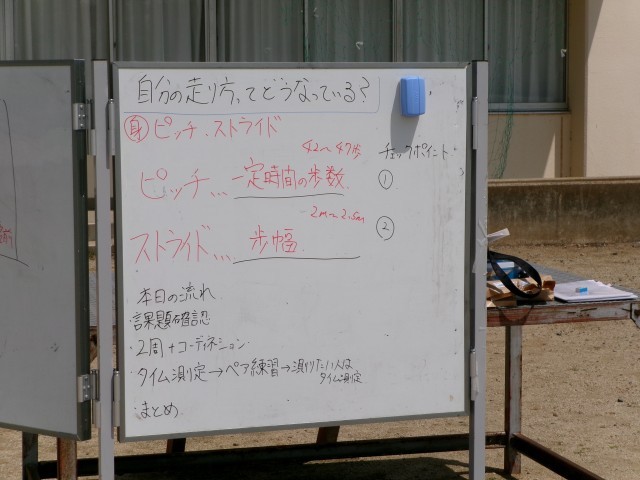 自分の走り方ってどうなっている?
身 ピッチ・ストライド
42〜47歩
チェックポイント
ピッチ… 一定時間の歩数
①
2m〜2.5m
②
ストライド… 歩幅
本日の流れ
課題確認
・2周+コーディネーション
・タイム測定→ペア練習→測りたい人は
タイム測定
まとめ